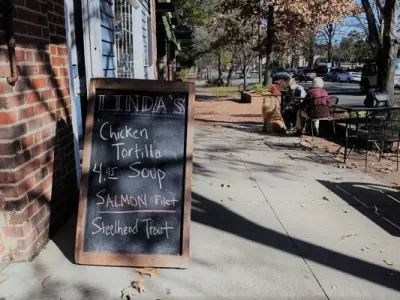 LINDA'S
Chicken
Tortilla
4.25 Soup
SALMON Filet
Steelhead Trout